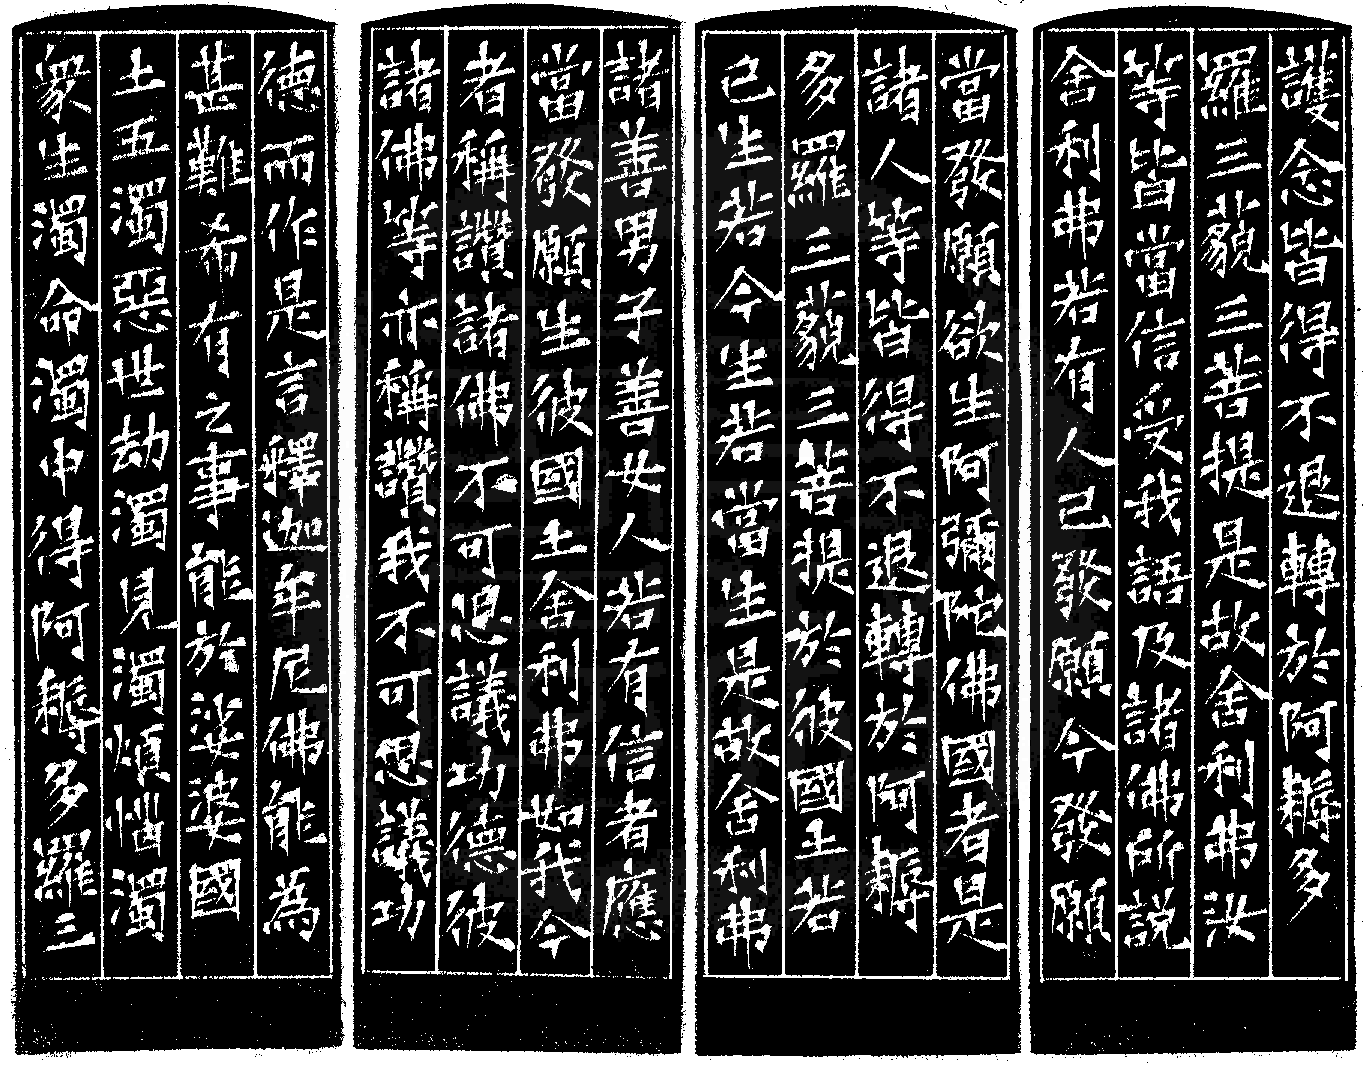 護念皆得不退轉於阿耨多
羅三藐三菩提是故舍利弗汝
等皆當信受我語及諸佛所説
舍利弗若有人已發願今發願
當發願欲生阿彌陀佛國者是
諸人等皆得不退轉於阿耨
多羅三藐三菩提於彼國土若
已生若今生若當生是故舍利弗
諸善男子善女人若有信者應
當發願生彼國土舍利弗如我今
者稱讚諸佛不可思議功德彼
諸佛等亦稱讚我不可思議功
德而作是言釋迦牟尼佛能為
甚難希有之事能於娑婆國
土五濁惡世劫濁見濁煩惱濁
衆生濁命濁中得阿耨多羅三